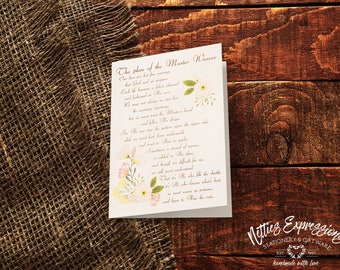 The plan of the Master Weaver
Our lives are but fine weavings
that God and we prepare
Each life becomes a fabric planned
and fashioned in His care
We may not always see just how
the weavings intertwine
but we must trust the Master's hand
and follow His design
For He can view the pattern upon the upper side
while we must look from underneath
and trust in Him to guide
Sometimes a strand of sorrow
is added to His plan
and though it's difficult for us
we still must understand
That it's He who fills the shuttle
it's He who knows what's best
so must weave in patience
and leave to Him the rest
Netties Expressions
STATIONERY & GIFTWARE
handmade with love